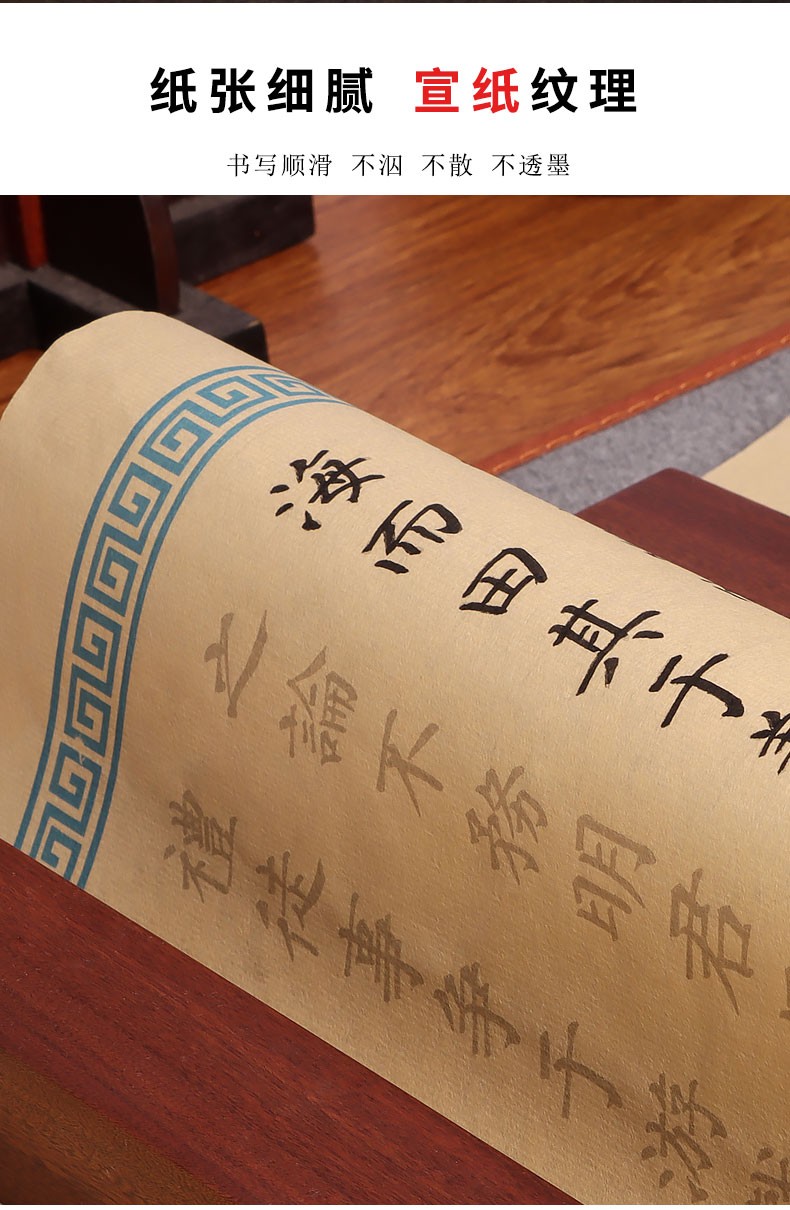 纸张细腻 宣纸纹理
书写顺滑 不洇 不散 不透墨
海而田其于
之論不務明君
禮徒事爭于游